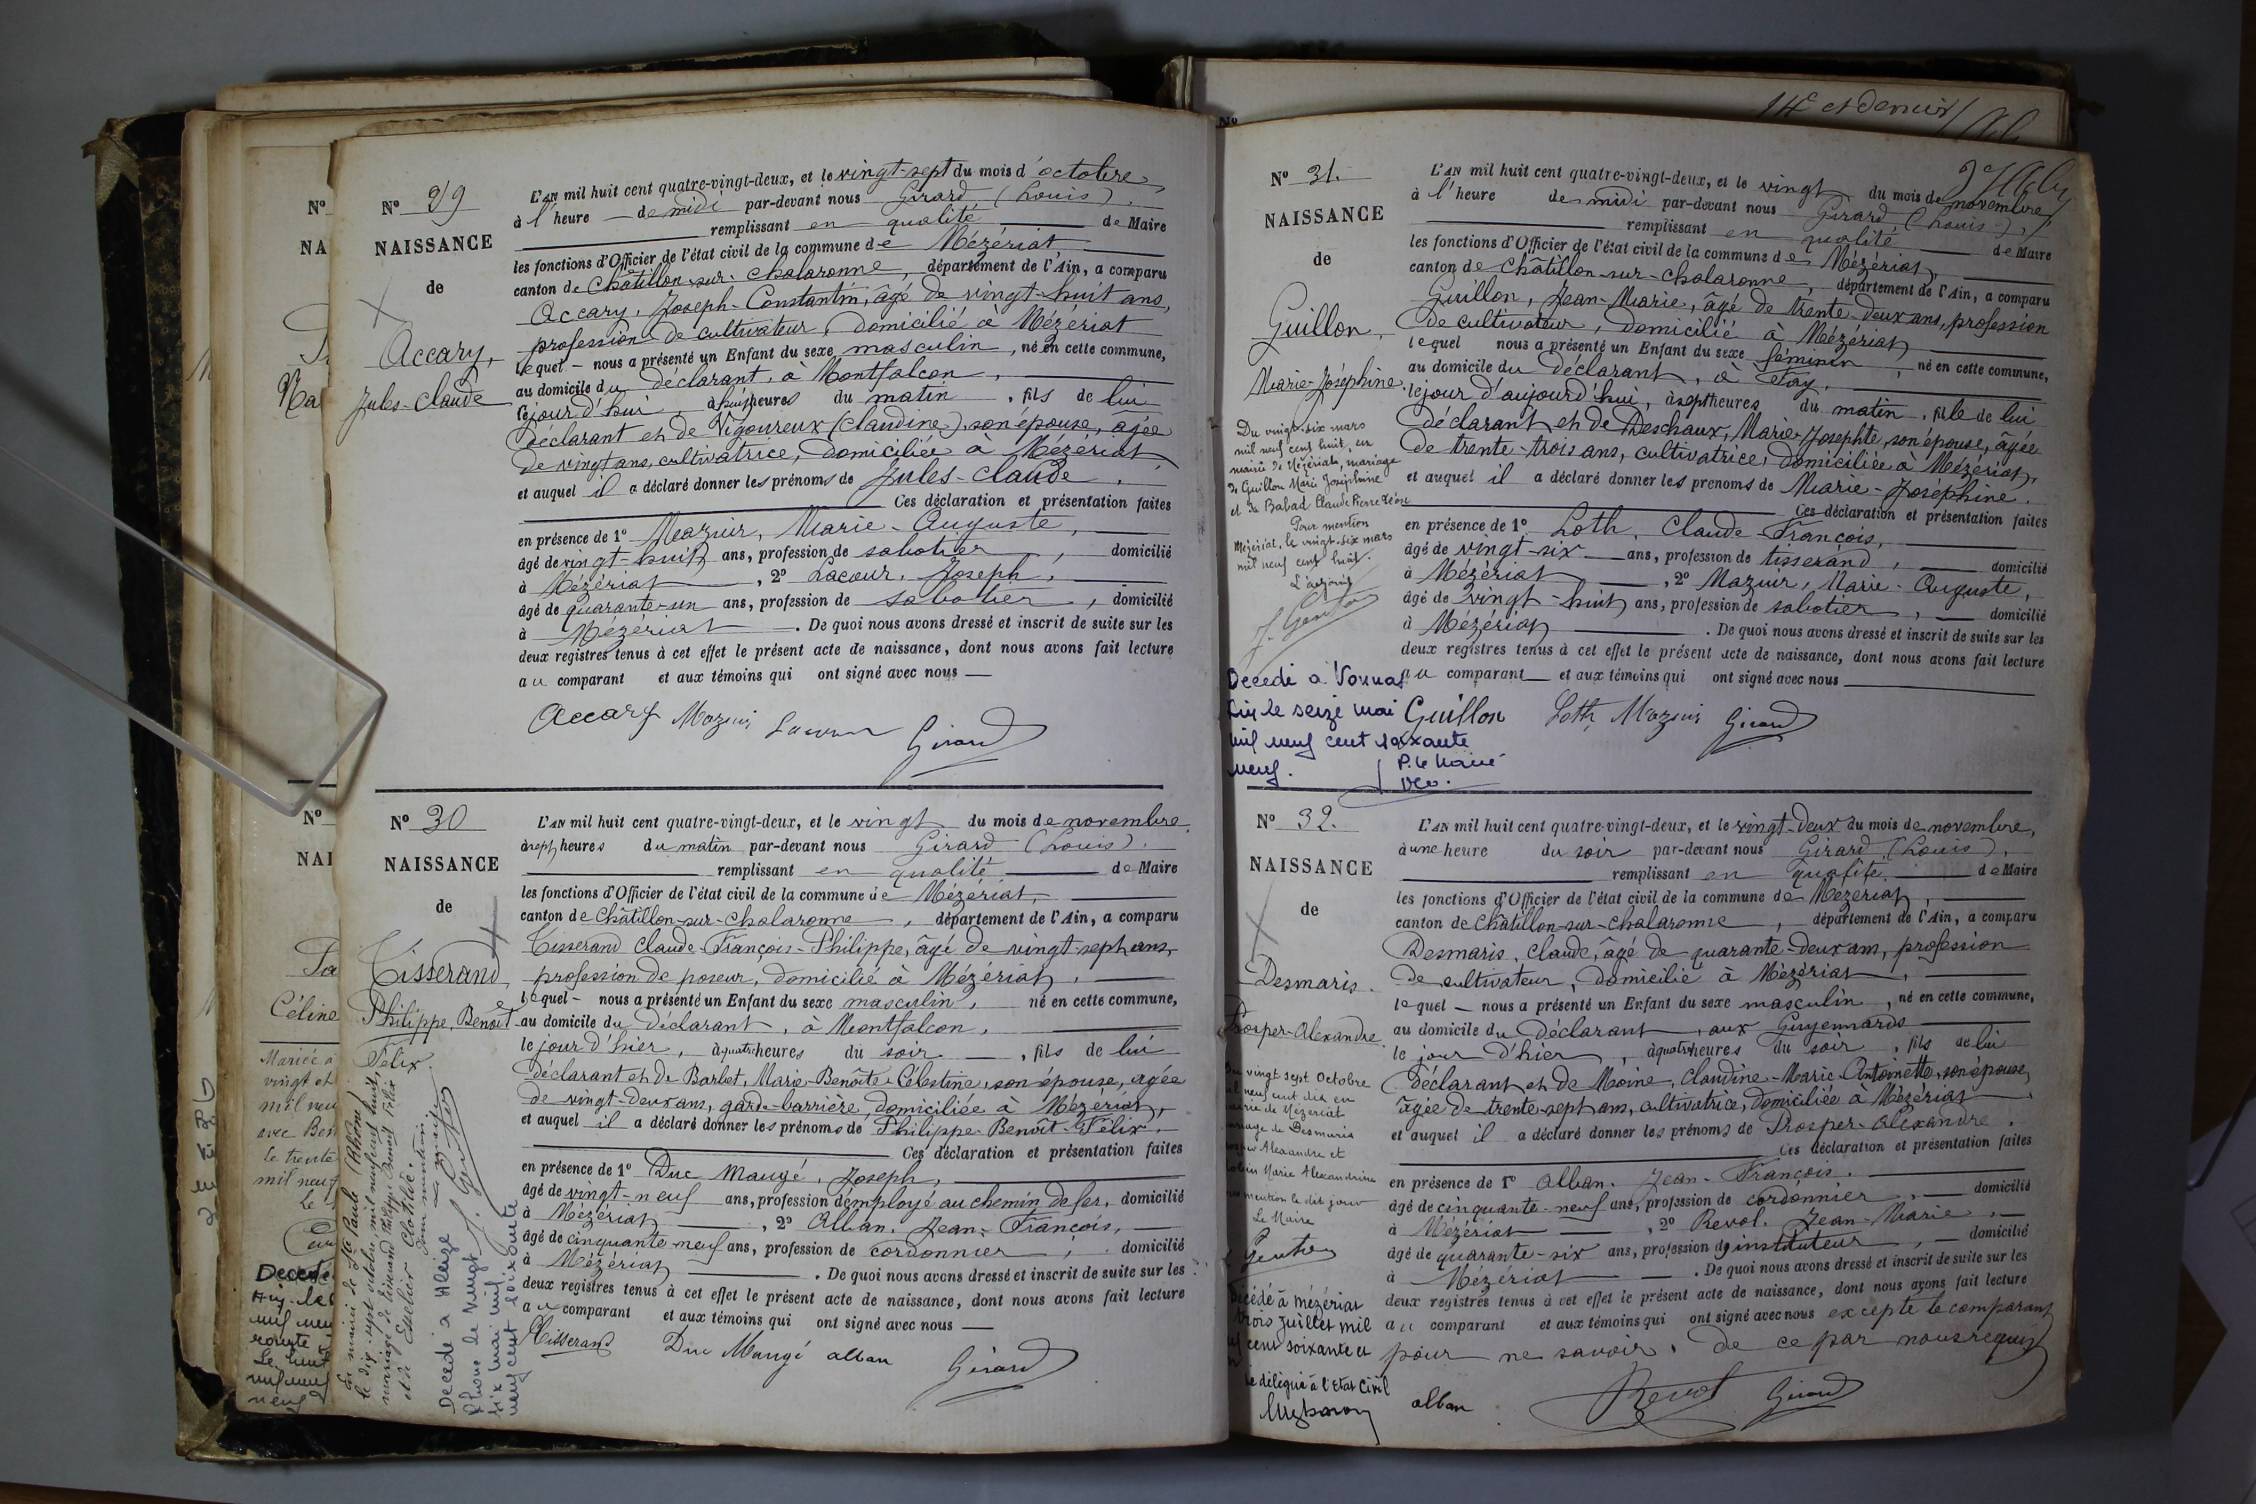 14e et dernier
Nº 29
NAISSANCE
de
Accary,
Jules-Claude
L'AN mil huit cent quatre-vingt-deux, et le vingt-sept du mois d'octobre,
à l'heure de midi par-devant nous Girard (Louis).
remplissant en qualité de Maire
les fonctions d'Officier de l'état civil de la commune de Mézériat
canton de Châtillon-sur-Chalaronne, département de l'Ain, a comparu
Accary, Joseph-Constantin, âgé de vingt-huit ans,
profession de cultivateur, domicilié à Mézériat
lequel nous a présenté un Enfant du sexe masculin, né en cette commune,
au domicile du déclarant, à Montfalcon,
le jour d'hui à huit heures du matin, fils de lui
déclarant et de Vigoureux (Claudine), son épouse, âgée
de vingt ans, cultivatrice, domiciliée à Mézériat,
et auquel il a déclaré donner les prénoms de Jules-Claude.
Ces déclaration et présentation faites
en présence de 1º Mazuir, Marie-Auguste,
âgé de vingt-huit ans, profession de sabotier, domicilié
à Mézériat, 2º Lacour, Joseph,
âgé de quarante-un ans, profession de sabotier, domicilié
à Mézériat. De quoi nous avons dressé et inscrit de suite sur les
deux registres tenus à cet effet le présent acte de naissance, dont nous avons fait lecture
au comparant et aux témoins qui ont signé avec nous
Accary Mazuir Lacour Girard
Nº 30
NAISSANCE
de
Tisserand,
Philippe-Benoît-
Félix.
En mairie de Ste Paule (Rhône)
le dix sept octobre mil neuf cent huit,
mariage de Tisserand Philippe Benoît Félix
et de Clotilde.
Pour mention
J. Genton
Décédé à Alaize
Rhône le vingt
six mai mil
neuf cent soixante
L'AN mil huit cent quatre-vingt-deux, et le vingt du mois de novembre
à sept heures du matin par-devant nous Girard (Louis).
remplissant en qualité de Maire
les fonctions d'Officier de l'état civil de la commune de Mézériat,
canton de Châtillon-sur-Chalaronne, département de l'Ain, a comparu
Tisserand Claude-François-Philippe, âgé de vingt-sept ans,
profession de poseur, domicilié à Mézériat,
lequel nous a présenté un Enfant du sexe masculin, né en cette commune,
au domicile du déclarant, à Montfalcon,
le jour d'hier, à quatre heures du soir, fils de lui
déclarant et de Barbet, Marie-Benoîte-Célestine, son épouse, âgée
de vingt-deux ans, garde-barrière, domiciliée à Mézériat,
et auquel il a déclaré donner les prénoms de Philippe-Benoît-Félix.
Ces déclaration et présentation faites
en présence de 1º Duc Maugé, Joseph,
âgé de vingt-neuf ans, profession d'employé au chemin de fer, domicilié
à Mézériat, 2º Alban, Jean-François,
âgé de cinquante-neuf ans, profession de cordonnier, domicilié
à Mézériat. De quoi nous avons dressé et inscrit de suite sur les
deux registres tenus à cet effet le présent acte de naissance, dont nous avons fait lecture
au comparant et aux témoins qui ont signé avec nous
Tisserand Duc Maugé alban Girard
Nº 31.
NAISSANCE
de
Guillon,
Marie-Joséphine.
Du vingt-six mars
mil neuf cent huit, en
mairie de Mézériat, mariage
de Guillon Marie Joséphine
et de Babad Claude Pierre
Pour mention
Mézériat, le vingt-six mars
mil neuf cent huit.
J. Genton
Décédé à Vonnas
Ain le seize mai
mil neuf cent soixante
neuf.
P. le Maire
L'AN mil huit cent quatre-vingt-deux, et le vingt du mois de novembre
à l'heure de midi par-devant nous Girard (Louis),
remplissant en qualité de Maire
les fonctions d'Officier de l'état civil de la commune de Mézériat,
canton de Châtillon-sur-Chalaronne, département de l'Ain, a comparu
Guillon, Jean-Marie, âgé de trente-deux ans, profession
de cultivateur, domicilié à Mézériat
lequel nous a présenté un Enfant du sexe féminin, né en cette commune,
au domicile du déclarant, à Fay,
le jour d'aujourd'hui, à sept heures du matin, fille de lui
déclarant et de Deschaux, Marie-Josephte, son épouse, âgée
de trente-trois ans, cultivatrice, domiciliée à Mézériat,
et auquel il a déclaré donner les prénoms de Marie-Joséphine.
Ces déclaration et présentation faites
en présence de 1º Loth, Claude-François,
âgé de vingt-six ans, profession de tisserand, domicilié
à Mézériat, 2º Mazuir, Marie-Auguste,
âgé de vingt-huit ans, profession de sabotier, domicilié
à Mézériat. De quoi nous avons dressé et inscrit de suite sur les
deux registres tenus à cet effet le présent acte de naissance, dont nous avons fait lecture
au comparant et aux témoins qui ont signé avec nous
Guillon Loth Mazuir Girard
Nº 32.
NAISSANCE
de
Desmaris.
Prosper-Alexandre.
vingt sept Octobre
neuf cent dix en
mairie de Mézériat
mariage de Desmaris
Alexandre et
Marie Alexandrine
mention le dit jour
Le Maire
Genton
Décédé à Mézériat
trois Juillet mil
cent soixante et
Le délégué à l'Etat Civil
L'AN mil huit cent quatre-vingt-deux, et le vingt-deux du mois de novembre,
à une heure du soir par-devant nous Girard (Louis),
remplissant en qualité de Maire
les fonctions d'Officier de l'état civil de la commune de Mézériat,
canton de Châtillon-sur-Chalaronne, département de l'Ain, a comparu
Desmaris, Claude, âgé de quarante-deux ans, profession
de cultivateur, domicilié à Mézériat,
lequel nous a présenté un Enfant du sexe masculin, né en cette commune,
au domicile du déclarant, aux Guyennards
le jour d'hier, à quatre heures du soir, fils de lui
déclarant et de Moine, Claudine-Marie-Antoinette, son épouse,
âgée de trente-sept ans, cultivatrice, domiciliée à Mézériat,
et auquel il a déclaré donner les prénoms de Prosper-Alexandre.
Ces déclaration et présentation faites
en présence de 1º Alban, Jean-François.
âgé de cinquante-neuf ans, profession de cordonnier, domicilié
à Mézériat, 2º Revol, Jean-Marie,
âgé de quarante-six ans, profession d'instituteur, domicilié
à Mézériat. De quoi nous avons dressé et inscrit de suite sur les
deux registres tenus à cet effet le présent acte de naissance, dont nous avons fait lecture
au comparant et aux témoins qui ont signé avec nous excepté le comparant
pour ne savoir, de ce par nous requis
alban Revol Girard